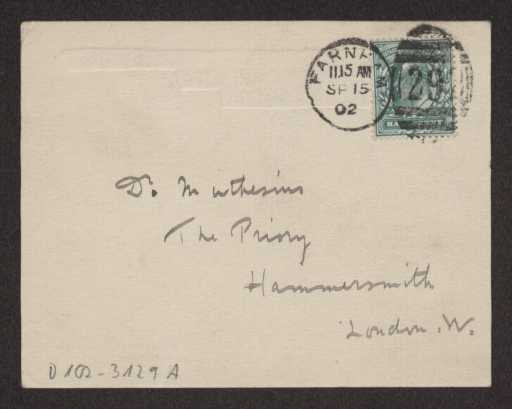 FARNH M
11.15 AM
SP 15
02
29
HA
Dr. Muthesius
The Priory
Hammersmith
London. W.
D 102-3129 A